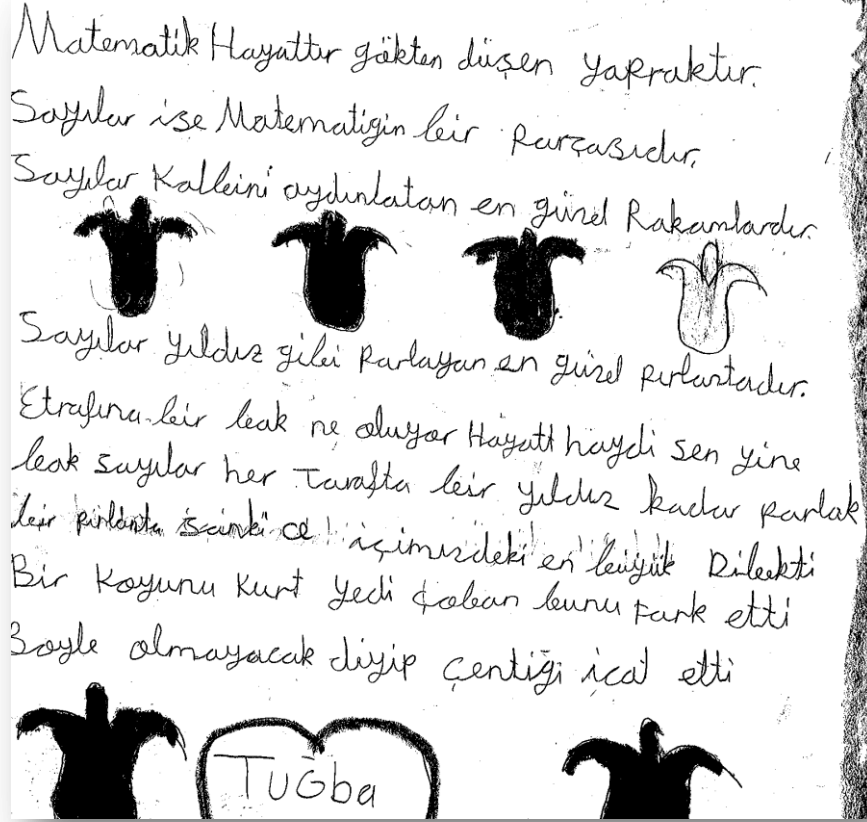 Matematik Hayattır gökten düşen yapraktır.
Sayılar ise Matematiğin bir parçasıdır.
Sayılar Kalbini aydınlatan en güzel Rakamlardır.
Sayılar yıldız gibi parlayan en güzel pırlantadır.
Etrafına bir bak ne oluyor Hayatt haydi sen yine
bak sayılar her Tarafta bir yıldız kadar parlak
bir pırlanta sanki o içimizdeki en büyük Dilekti
Bir Koyunu Kurt yedi Çoban bunu Fark etti
Boyle olmayacak diyip çentiği icat etti
TuĞba